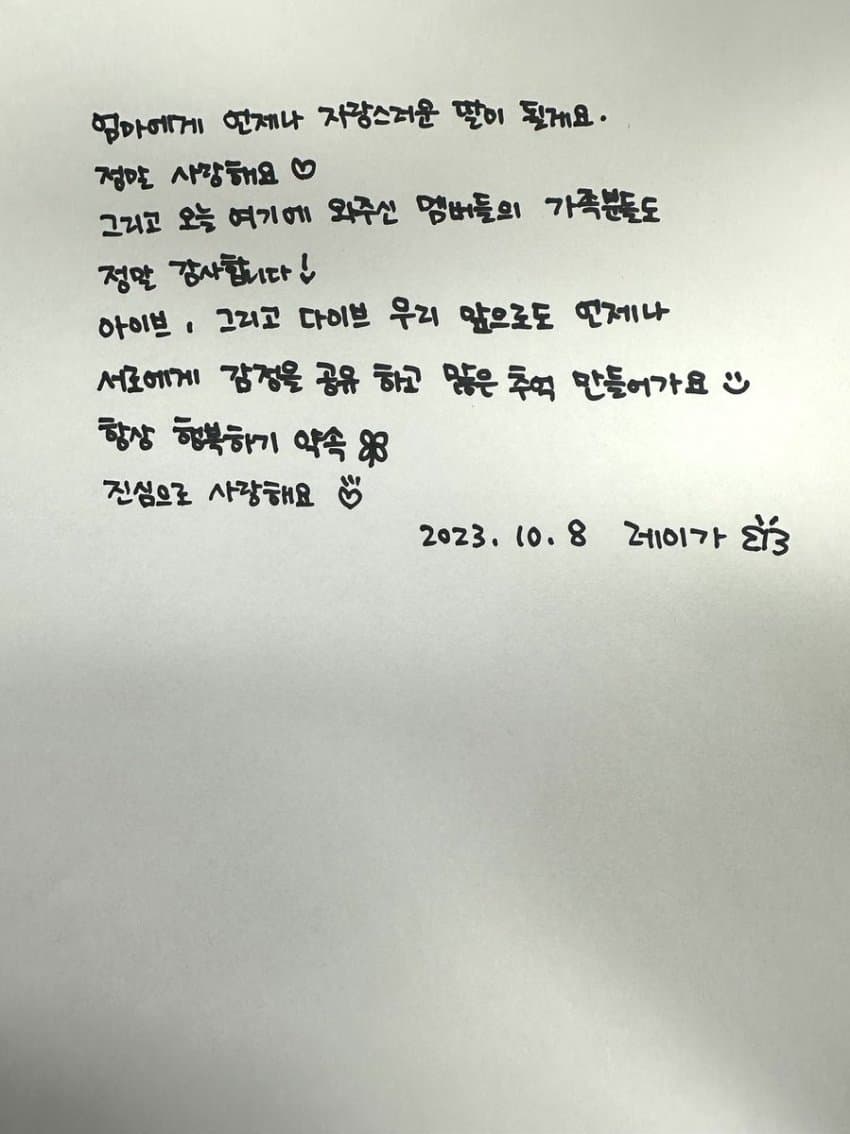 엄마에게 언제나 자랑스러운 딸이 될게요.
정말 사랑해요 ♡
그리고 오늘 여기에 와주신 멤버들의 가족분들도
정말 감사합니다!
아이브, 그리고 다이브 우리 앞으로도 언제나
서로에게 감정을 공유 하고 많은 추억 만들어가요
항상 행복하기 약속
진심으로 사랑해요 ♡
2023. 10. 8 레이가